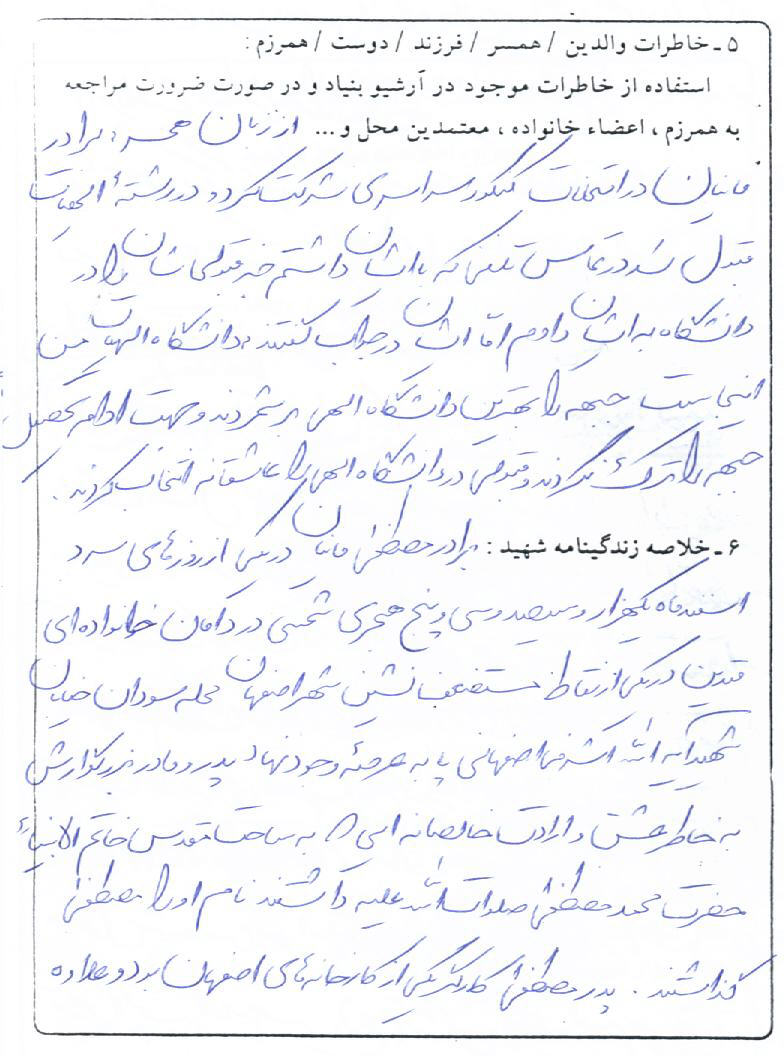 ۵ ـ خاطرات والدین / همسر / فرزند / دوست / همرزم :
استفاده از خاطرات موجود در آرشیو بنیاد و در صورت ضرورت مراجعه
به همرزم ، اعضاء خانواده ، معتمدین محل و ... از زبان همسر : برادر
مانیان در امتحانات کنکور سراسری شرکت کرد و در رشتهٔ الهیات
قبول شد در تماس تلفنی که با ایشان داشتم خبر قبولی شان را در
دانشگاه به ایشان دادم اما ایشان در جواب گفتند دانشگاه الهیات من
اینجاست جبهه را بهترین دانشگاه الهی بر شمردند و جهت ادامه تحصیل
جبهه را ترک نکردند و قبولی در دانشگاه الهی را عاشقانه انتخاب کردند .
۶ ـ خلاصه زندگینامه شهید : برادر مصطفی مانیان در یکی از روزهای سرد
اسفندماه یکهزار و سیصد و سی و پنج هجری شمسی در دامان خانواده ای
متدین در یکی از نقاط مستضعف نشین شهر اصفهان محله سودان خیابان
شهید آیه الله اشرفی اصفهانی پا به عرصهٔ وجود نهاد پدر و مادر بزرگوارش
به خاطر عشق و ارادت خالصانه ای که به ساحت مقدس خاتم الانبیاء
حضرت محمد مصطفی صلوات الله علیه داشتند نام او را مصطفی
گذاشتند . پدر مصطفی کارگر یکی از کارخانه های اصفهان بود و علاوه